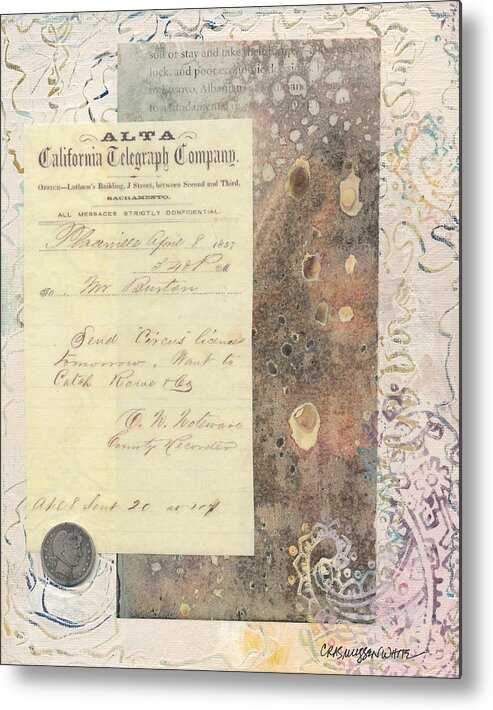 soil or stay and take their
luck, and poor economic
Kosovo, Albanians and
to a fundamental
ALTA
California Telegraph Company.
OFFICE—Latham's Building, J Street, between Second and Third,
SACRAMENTO.
ALL MESSAGES STRICTLY CONFIDENTIAL.
April 8 1857
To Mr Burton
Send "Circus" licence
tomorrow. Want to
Catch Rowe & Co
County Recorder
Sent 20